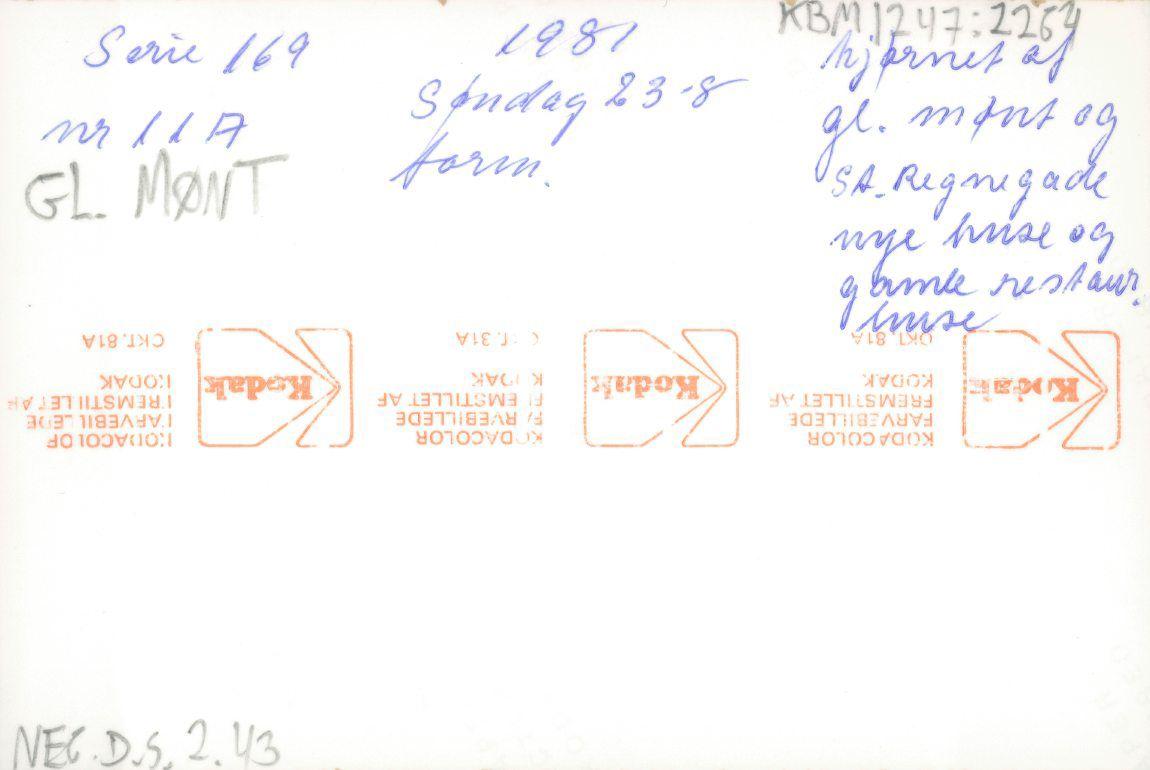 KBM 1247:2264
Serie 169
nr 11A
GL. MØNT
1981
Søndag 23-8
form.
hjørnet af
gl. mønt og
St. Regnegade
nye huse og
gamle restaur.
huse
KODACOLOR
FARVEBILLEDE
FREMSTILLET AF
KODAK
OKT. 81A
Kodak
KODACOLOR
FARVEBILLEDE
FREMSTILLET AF
KODAK
OKT. 81A
Kodak
KODACOLOR
FARVEBILLEDE
FREMSTILLET AF
KODAK
OKT. 81A
Kodak
NEG. D.S. 2.43